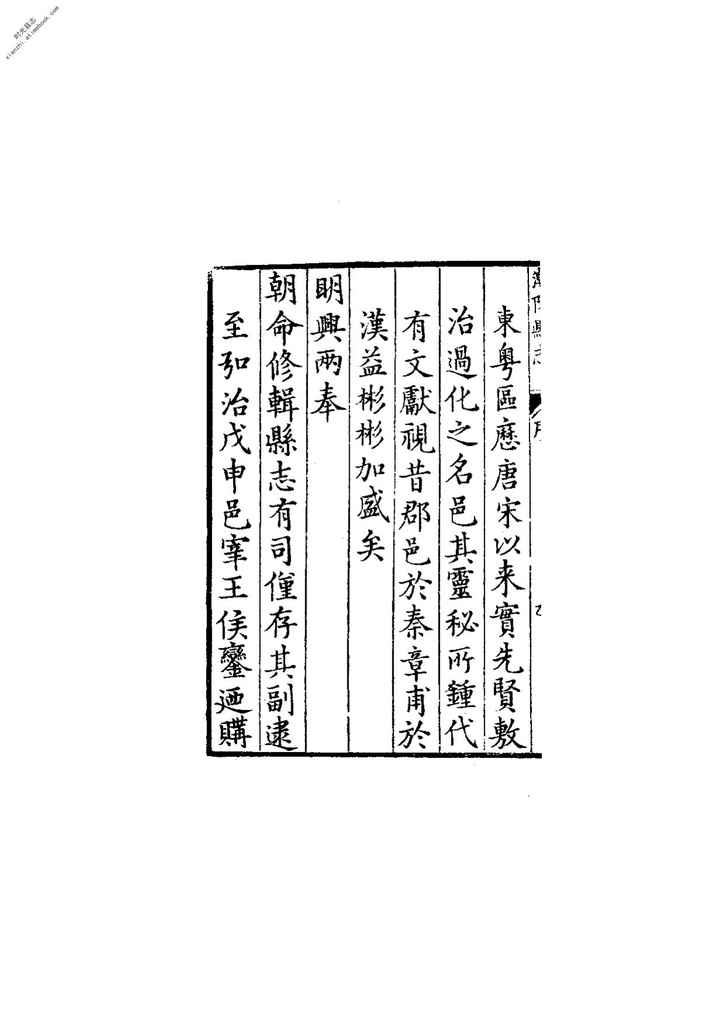 时光县志
xianzhi.atimebook.com
縣志
東粵區歷唐宋以来實先賢敷
治過化之名邑其靈秘所鍾代
有文獻視昔郡邑於秦章甫於
漢益彬彬加盛矣
明興兩奉
朝命修輯縣志有司僅存其副逮
至弘治戊申邑宰王侯鑾迺購